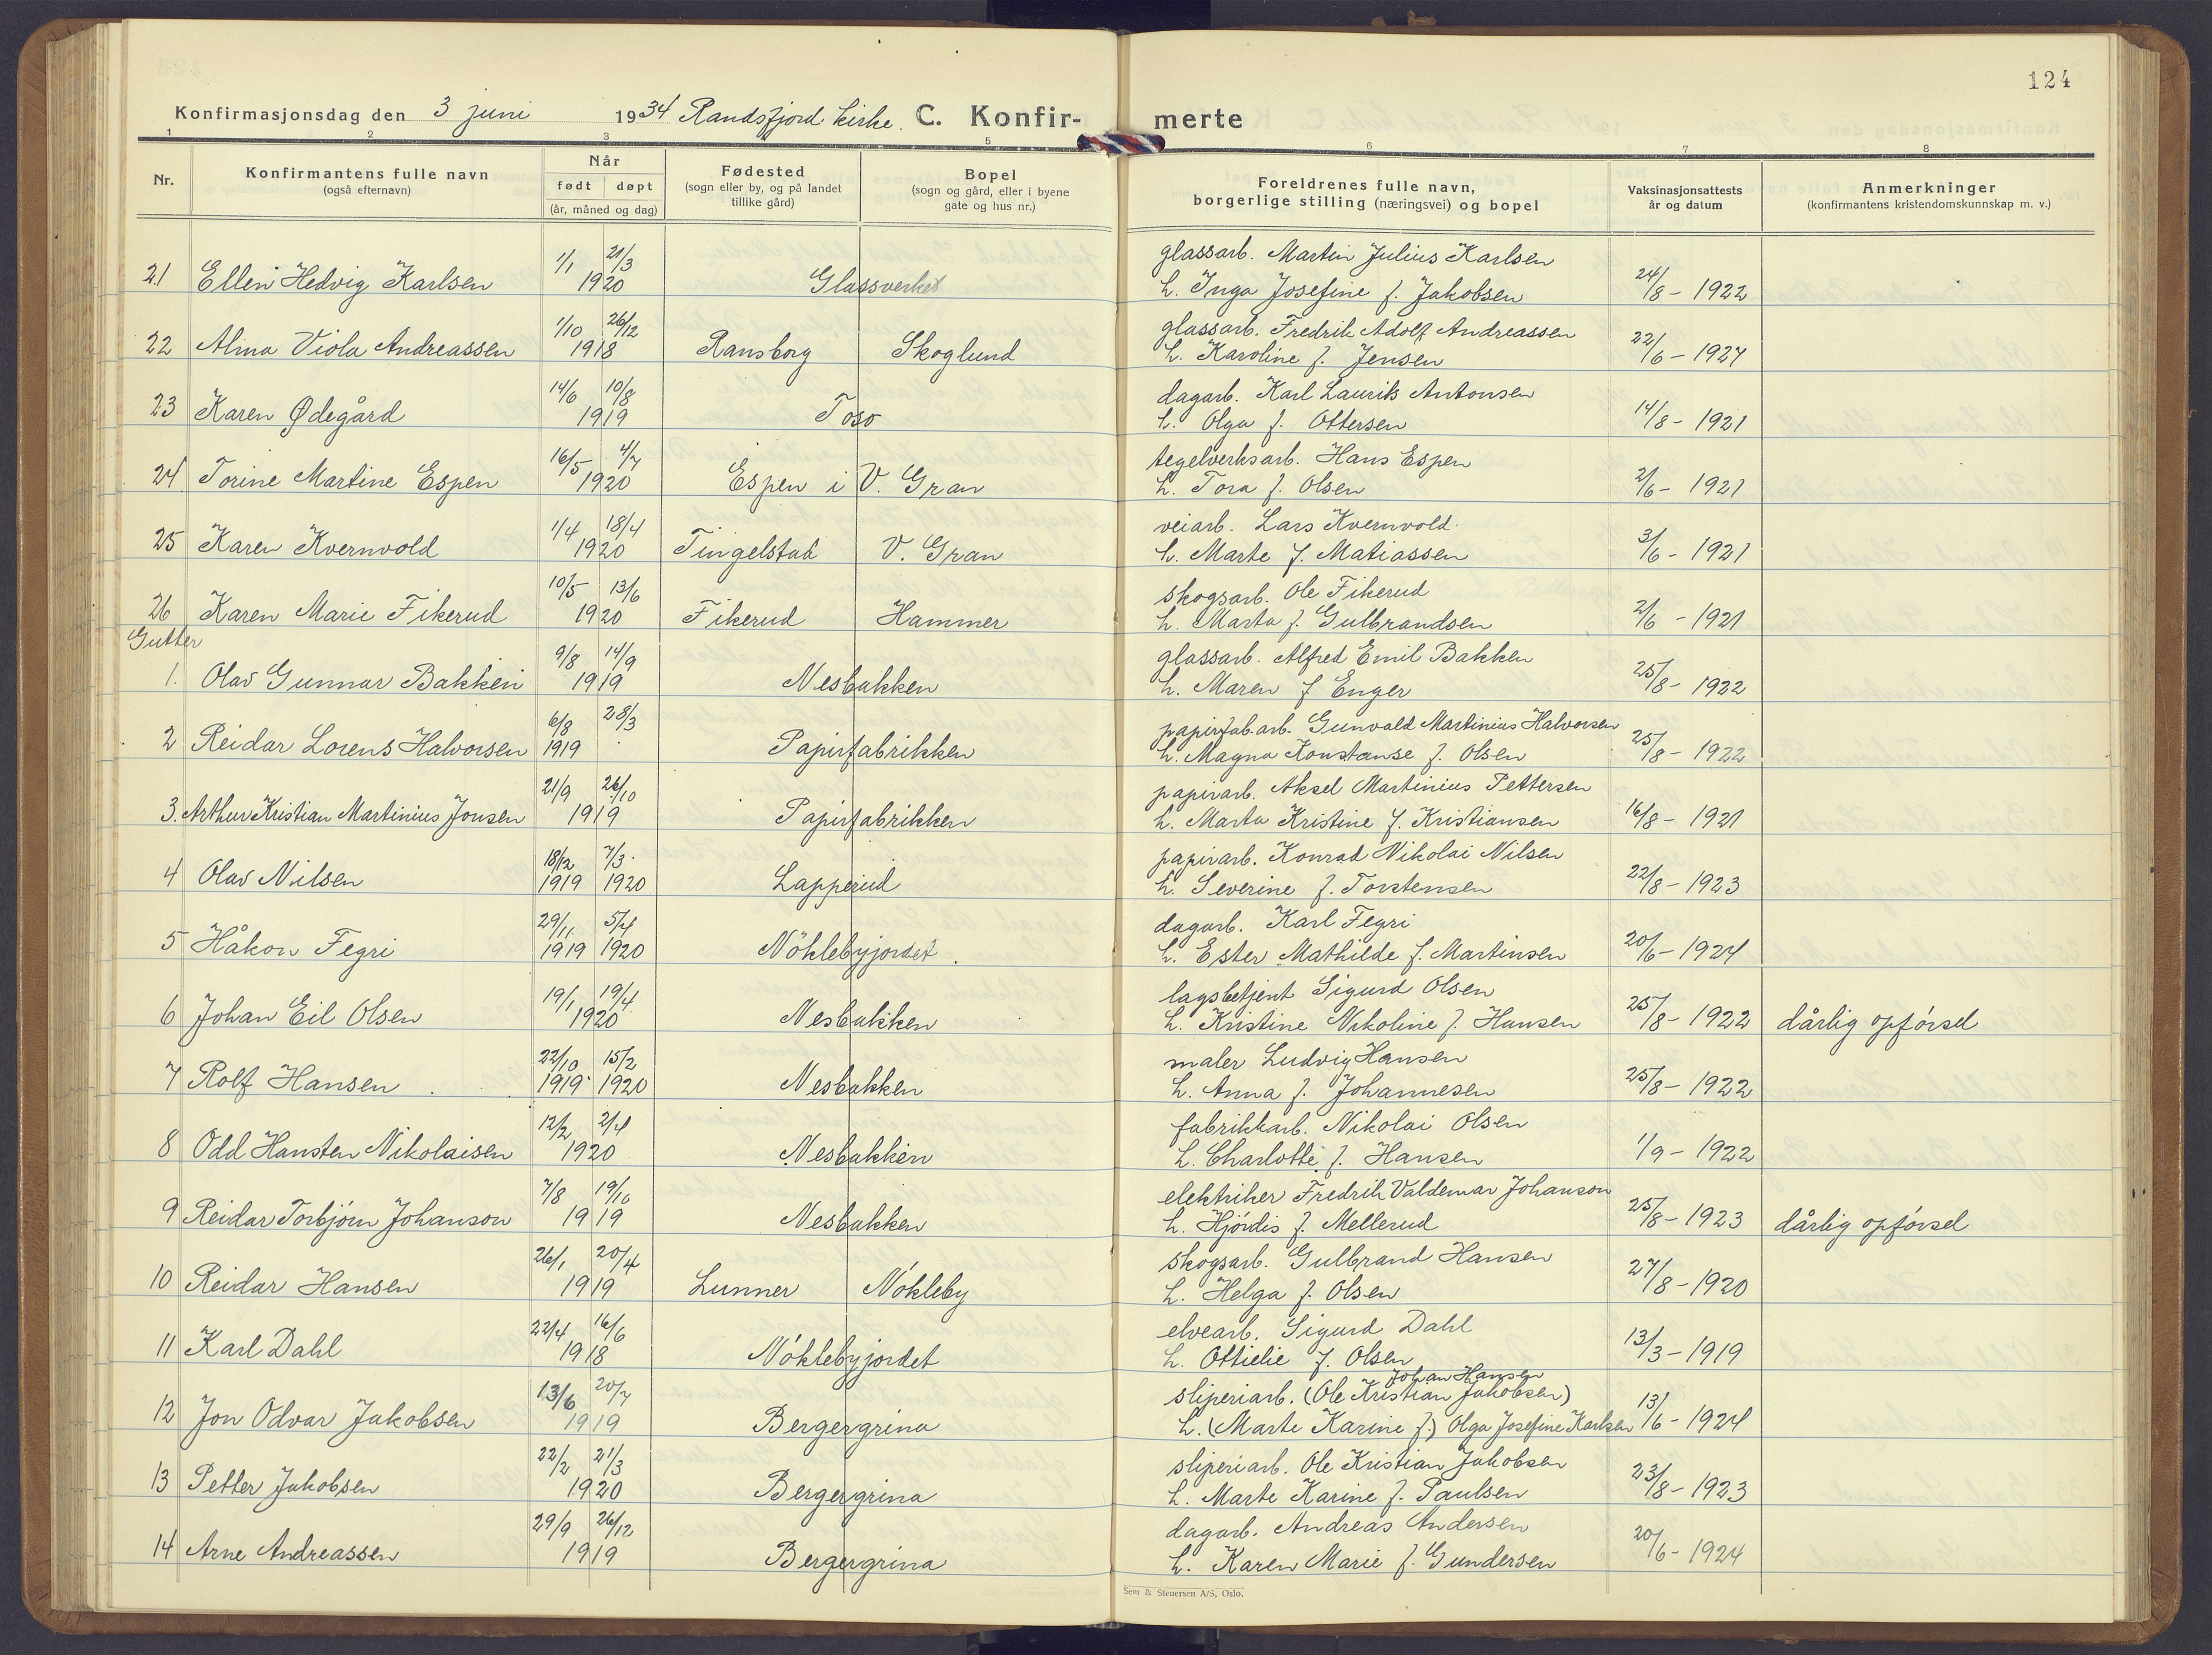 124
Konfirmasjonsdag den 3 juni 1934 Randsfjord kirke. C. Konfir- merte
1 2 3 5 6 7 8
Nr.
Konfirmantens fulle navn
(også efternavn)
Når
født døpt
(år, måned og dag)
Fødested
(sogn eller by, og på landet
tillike gård)
Bopel
(sogn og gård, eller i byene
gate og hus nr.)
Foreldrenes fulle navn,
borgerlige stilling (næringsvei) og bopel
Vaksinasjonsattests
år og datum
Anmerkninger
(konfirmantens kristendomskunnskap m. v.)
1/1 21/3 glassarb. Martin Julius Karlsen
21 Ellen Hedvig Karlsen 1920 Glassverket h. Inga Josefine f. Jakobsen 24/8 - 1922
1/10 26/12 glassarb. Fredrik Adolf Andreassen
22 Alma Viola Andreassen 1918 Ransborg Skoglund h. Karoline f. Jensen 22/6 - 1927
14/6 10/8 dagarb. Karl Laurits Antonsen
23 Karen Ødegård 1919 Toso h. Olga f. Ottersen 14/8 - 1921
16/5 4/7 tegelverksarb. Hans Espen
24 Torine Martine Espen 1920 Espen i V. Gran h. Tora f. Olsen 2/6 - 1921
1/4 18/4 veiarb. Lars Kvernvold
25 Karen Kvernvold 1920 Tingelstad V. Gran h. Marte f. Matiassen 3/6 - 1921
10/5 13/6 skogsarb. Ole Fikerud
26 Karen Marie Fikerud 1920 Fikerud Hammer h. Marta f. Gulbrandsen 2/6 - 1921
Gutter
9/8 14/9 glassarb. Alfred Emil Bakken
1. Olav Gunnar Bakken 1919 Nesbakken h. Maren f Enger 25/8 - 1922
6/8 28/3 papirfab.arb. Gunvald Martinius Halvorsen
2 Reidar Lorens Halvorsen 1919 Papirfabrikken h. Magna Konstanse f. Olsen 25/8 - 1922
21/9 26/10 papirarb. Aksel Martinius Pettersen
3. Arthur Kristian Martinius Jonsen 1919 Papirfabrikken h. Marta Kristine f. Kristiansen 16/8 - 1921
18/12 7/3 papirarb. Konrad Nikolai Nilsen
4 Olav Nilsen 1919 1920 Lapperud h. Severine f. Torstensen 22/8 - 1923
29/11 5/4 dagarb. Karl Fegri
5 Håkon Fegri 1919 1920 Nöklebyjordet. h. Ester Mathilde f. Martinsen 20/6 - 1924
19/1 19/4 lagsbetjent Sigurd Olsen
6 Johan Eil Olsen 1920 Nesbakken h. Kristine Nikoline f. Hansen 25/8 - 1922 dårlig opførsel
22/10 15/2 maler Ludvig Hansen
7 Rolf Hansen 1919 1920 Nesbakken h. Anna f. Johannesen 25/8 - 1922
12/2 2/4 fabrikkarb. Nikolai Olsen
8 Odd Hansten Nikolaisen 1920 Nesbakken h. Charlotte f. Hansen 1/9 - 1922
7/8 19/10 elektriker Fredrik Valdemar Johanson
9 Reidar Torbjørn Johanson 1919 Nesbakken h. Hjördis f. Mellerud 25/8 - 1923 dårlig opførsel
26/1 20/4 skogsarb. Gulbrand Hansen
10 Reidar Hansen 1919 Lunner Nökleby h. Helga f. Olsen 27/8 - 1920
22/4 16/6 elvearb. Sigurd Dahl
11 Karl Dahl 1918 Nöklebyjordet h. Ottielie f. Olsen 13/3 - 1919
Johan Hansen
13/6 20/7 sliperiarb. (Ole Kristian Jakobsen)
12 Jon Odvar Jakobsen 1919 Bergergrina h. (Marte Karine f.) Olga Josefine Karlsen 13/6 - 1924
22/2 21/3 sliperiarb. Ole Kristian Jakobsen
13 Petter Jakobsen 1920 Bergergrina h. Marte Karine f. Paulsen 23/8 - 1923
29/9 26/12 dagarb. Andreas Andersen
14 Arne Andreassen 1919 Bergergrina h. Karen Marie f. Gundersen 20/6 - 1924
Sem & Stenersen A/S, Oslo.